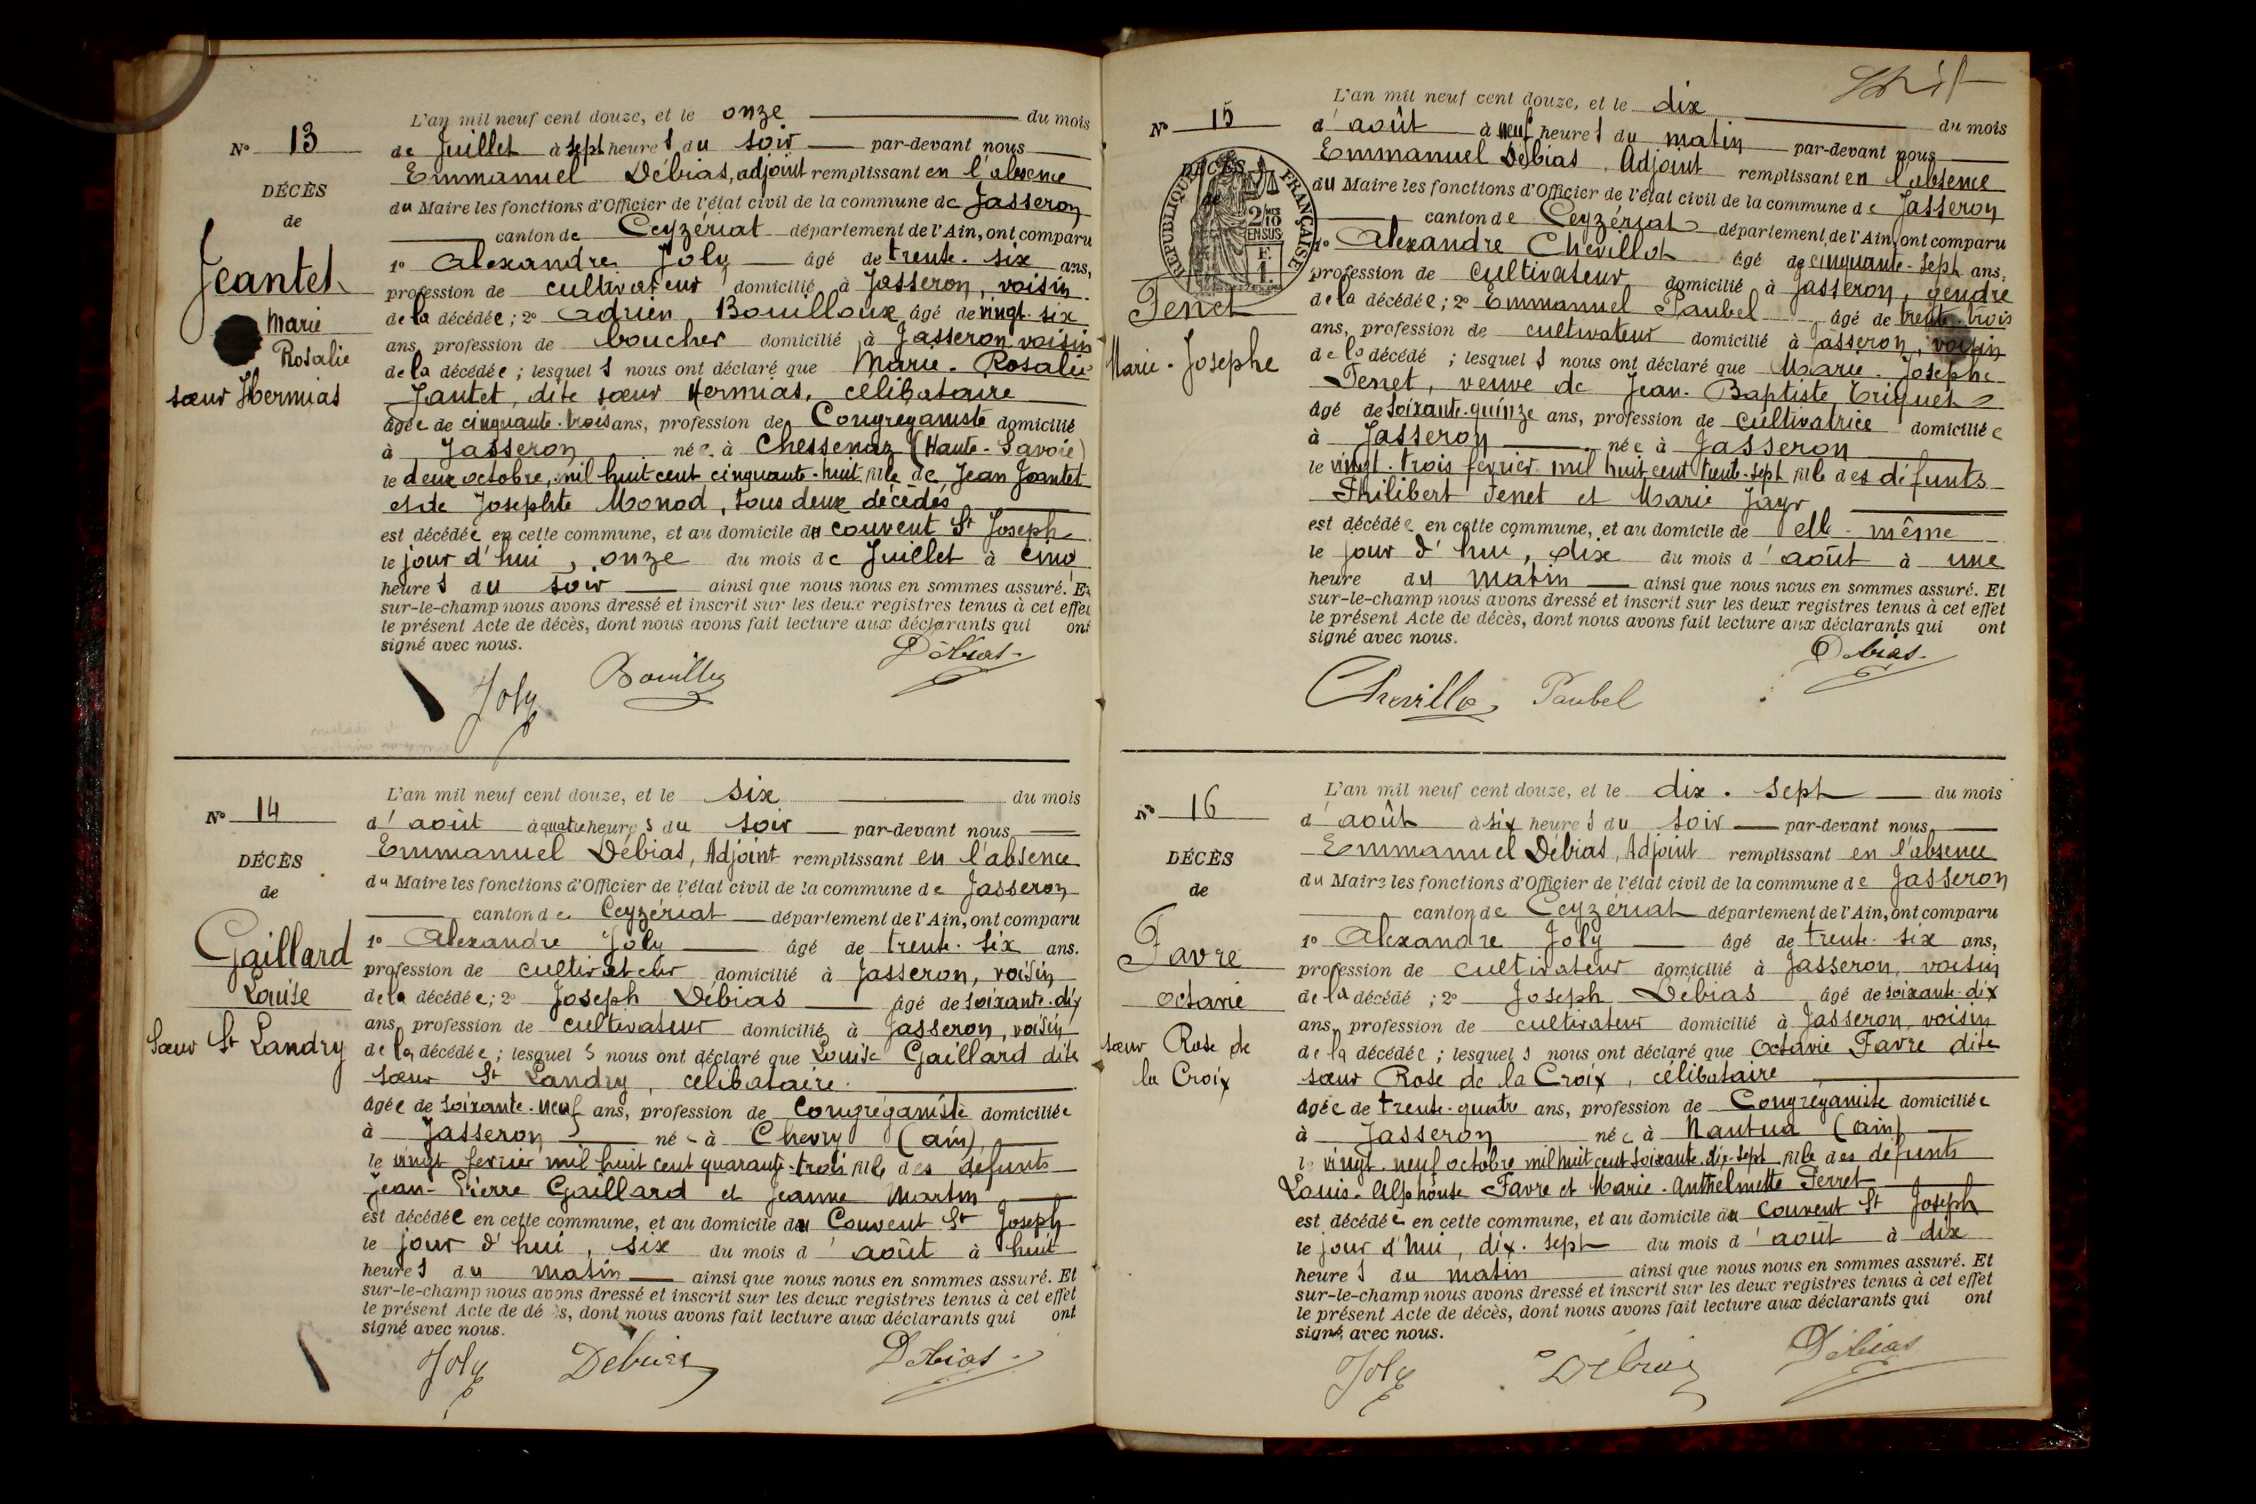 L'an mil neuf cent douze, et le onze du mois
N° 13
de Juillet à sept heures du soir par-devant nous
Emmanuel Débias, adjoint remplissant en l'absence
DÉCÈS
du Maire les fonctions d'Officier de l'état civil de la commune de Jasseron
de
canton de Ceyzériat département de l'Ain, ont comparu
Jeantet
1° Alexandre Joly âgé de trente-six ans,
profession de cultivateur domicilié à Jasseron, voisin
Marie
de la décédée; 2° Adrien Bouilloux âgé de vingt-six
Rosalie
ans, profession de boucher domicilié à Jasseron voisin
de la décédée; lesquels nous ont déclaré que Marie-Rosalie
sœur Hermias
Jantet, dite sœur Hermias, célibataire
âgée de cinquante-trois ans, profession de Congréganiste domicilié
à Jasseron née à Chessenaz (Haute-Savoie)
le deux octobre, mil huit cent cinquante-huit fille de Jean Jeantet
et de Josephte Monod, tous deux décédés
est décédée en cette commune, et au domicile du couvent St Joseph
le jour d'hui, onze du mois de Juillet à cinq
heures du soir ainsi que nous nous en sommes assuré. Et
sur-le-champ nous avons dressé et inscrit sur les deux registres tenus à cet effet
le présent Acte de décès, dont nous avons fait lecture aux déclarants qui ont
signé avec nous.
Joly Bouilloux Débias
L'an mil neuf cent douze, et le six du mois
N° 14
d'août à quatre heures du soir par-devant nous
Emmanuel Débias, Adjoint remplissant en l'absence
DÉCÈS
du Maire les fonctions d'Officier de l'état civil de la commune de Jasseron
de
canton de Ceyzériat département de l'Ain, ont comparu
Gaillard
1° Alexandre Joly âgé de trente-six ans.
profession de cultivateur domicilié à Jasseron, voisin
Louise
de la décédée; 2° Joseph Débias âgé de soixante-dix
ans, profession de cultivateur domicilié à Jasseron, voisin
Sœur St Landry
de la décédée; lesquels nous ont déclaré que Louise Gaillard dite
sœur St Landry, célibataire.
âgée de soixante-neuf ans, profession de Congréganiste domiciliée
à Jasseron née à Chevry (ain)
le vingt fevrier mil huit cent quarante-trois fille des défunts
Jean-Pierre Gaillard et Jeanne Martin
est décédée en cette commune, et au domicile du Couvent St Joseph
le jour d'hui, six du mois d'août à huit
heures du matin ainsi que nous nous en sommes assuré. Et
sur-le-champ nous avons dressé et inscrit sur les deux registres tenus à cet effet
le présent Acte de dé s, dont nous avons fait lecture aux déclarants qui ont
signé avec nous.
Joly Debias Débias
L'an mil neuf cent douze, et le dix du mois
N° 15
d'août à neuf heures du matin par-devant nous
Emmanuel Débias Adjoint remplissant en l'absence
DÉCÈS
de
du Maire les fonctions d'Officier de l'état civil de la commune de Jasseron
RÉPUBLIQUE FRANÇAISE
2/10 EN SUS
canton de Ceyzériat département de l'Ain, ont comparu
1° Alexandre Chevillot âgé de cinquante-sept ans,
profession de cultivateur domicilié à Jasseron, gendre
Tenet
de la décédée; 2° Emmanuel Paubel âgé de trente-trois
ans, profession de cultivateur domicilié à Jasseron, voisin
Marie-Josephe
de la décédé; lesquels nous ont déclaré que Marie-Josephe
Tenet, veuve de Jean-Baptiste Triquet
âgé de soixante-quinze ans, profession de cultivatrice domiciliée
à Jasseron née à Jasseron
le vingt-trois fevrier mil huit cent trente-sept fille des défunts
Philibert Tenet et Marie Jayr
est décédée en cette commune, et au domicile de elle-même
le jour d'hui, dix du mois d'août à une
heure du matin ainsi que nous nous en sommes assuré. Et
sur-le-champ nous avons dressé et inscrit sur les deux registres tenus à cet effet
le présent Acte de décès, dont nous avons fait lecture aux déclarants qui ont
signé avec nous.
Chevillot Paubel Débias
L'an mil neuf cent douze, et le dix-sept du mois
N° 16
d'août à six heures du soir par-devant nous
Emmanuel Débias, Adjoint remplissant en l'absence
DÉCÈS
du Maire les fonctions d'Officier de l'état civil de la commune de Jasseron
de
canton de Ceyzériat département de l'Ain, ont comparu
Favre
1° Alexandre Joly âgé de trente-six ans,
profession de cultivateur domicilié à Jasseron, voisin
octavie
de la décédé; 2° Joseph Débias âgé de soixante-dix
ans, profession de cultivateur domicilié à Jasseron, voisin
sœur Rose de
de la décédée; lesquels nous ont déclaré que Octavie Favre dite
la Croix
sœur Rose de la Croix, célibataire
âgée de trente-quatre ans, profession de Congréganiste domiciliée
à Jasseron née à Nantua (ain)
le vingt-neuf octobre mil huit cent soixante-dix-sept fille des défunts
Louis-Alphonse Favre et Marie-Anthelmette Perret
est décédée en cette commune, et au domicile du Couvent St Joseph
le jour d'hui, dix-sept du mois d'août à dix
heures du matin ainsi que nous nous en sommes assuré. Et
sur-le-champ nous avons dressé et inscrit sur les deux registres tenus à cet effet
le présent Acte de décès, dont nous avons fait lecture aux déclarants qui ont
signé avec nous.
Joly Débias Débias